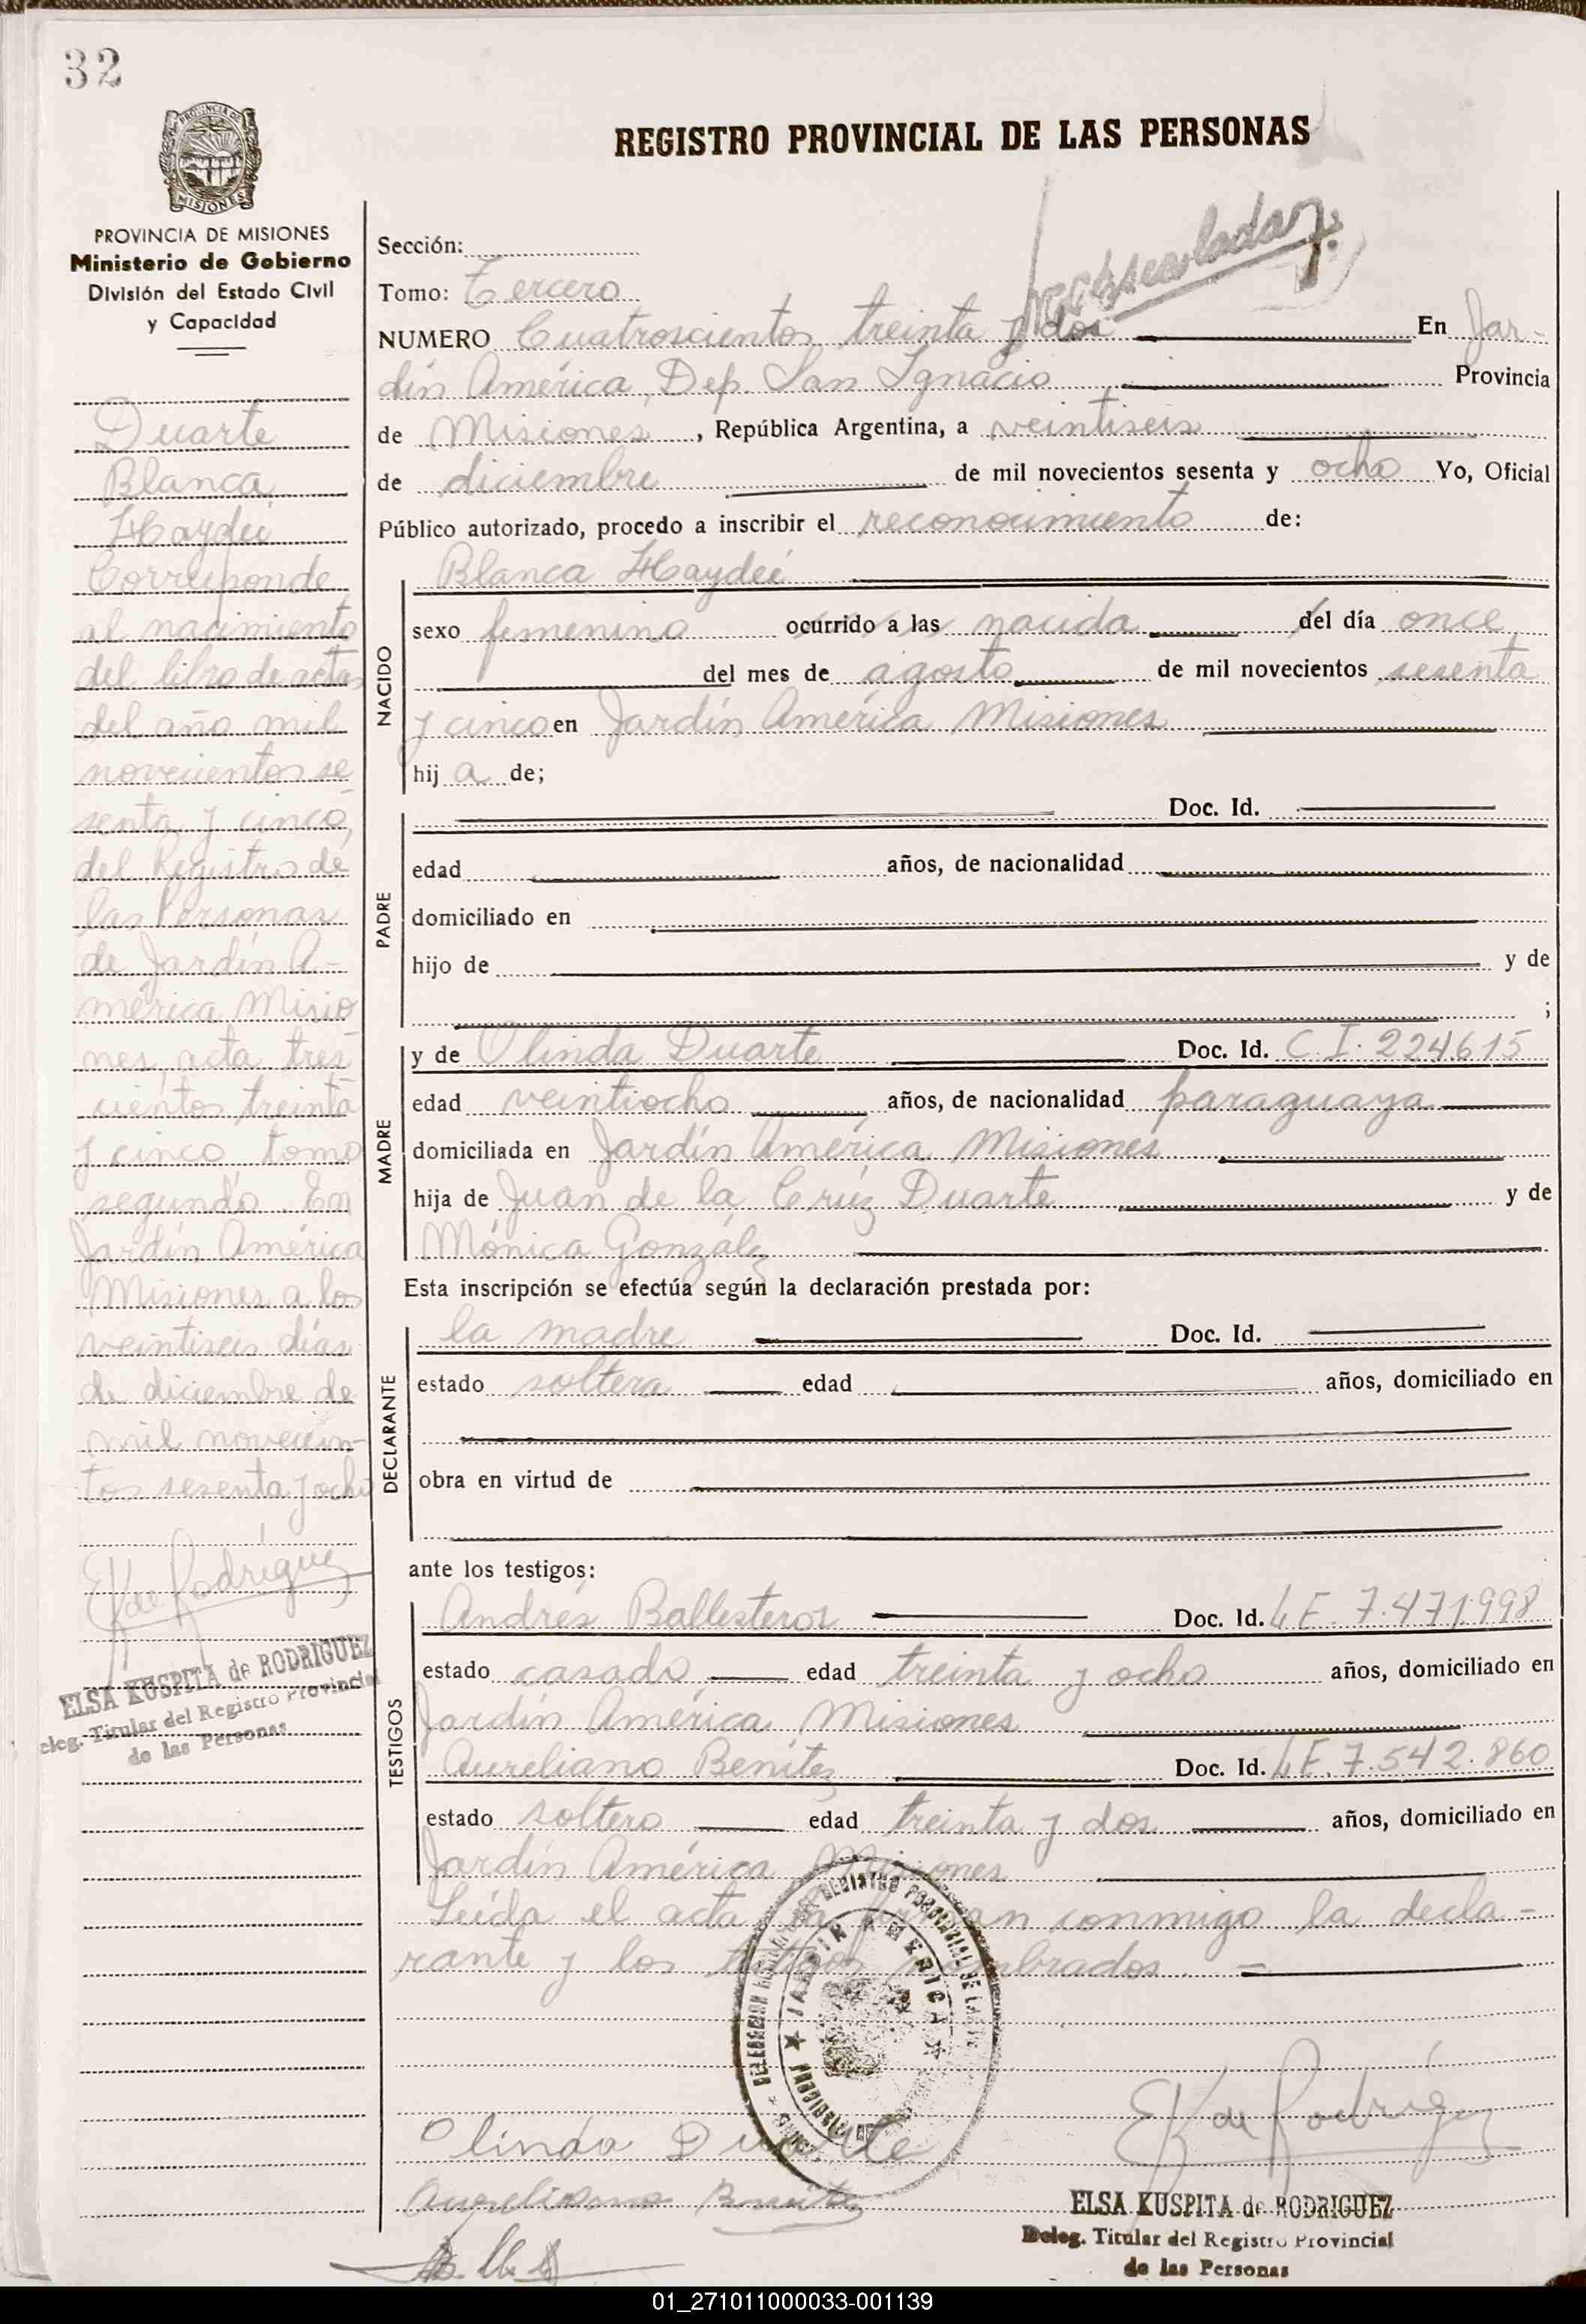 32
REGISTRO PROVINCIAL DE LAS PERSONAS
PROVINCIA DE
MISIONES
PROVINCIA DE MISIONES
Ministerio de Gobierno
División del Estado Civil
y Capacidad
Duarte
Blanca
Haydeé
Corresponde
al nacimiento
del libro de actas
del año mil
novecientos se
senta y cinco,
del Registro de
las Personas
de Jardín A-
mérica Misio
nes, acta tres
cientos treinta
y cinco tomo
segundo. En
Jardín América
Misiones a los
veintiseis días
de diciembre de
mil novecien-
tos sesenta y ocho
EK de Rodríguez
ELSA KUSPITA de RODRIGUEZ
eleg. Titular del Registro Provincial
de las Personas
Sección:
Tomo: Tercero
NUMERO Cuatroscientos treinta y dos En Jar-
dín América, Dep. San Ignacio Provincia
de Misiones, República Argentina, a veintiseis
de diciembre de mil novecientos sesenta y ocho Yo, Oficial
Público autorizado, procedo a inscribir el reconocimiento de:
Blanca Haydeé
NACIDO
sexo femenino ocurrido a las nacida del día once
del mes de agosto de mil novecientos sesenta
y cinco en Jardín América Misiones
hija de;
PADRE
Doc. Id.
edad años, de nacionalidad
domiciliado en
hijo de y de
;
MADRE
y de Olinda Duarte Doc. Id. C.I. 224615
edad veintiocho años, de nacionalidad paraguaya
domiciliada en Jardín América Misiones
hija de Juan de la Crúz Duarte y de
Mónica Gonzálz
Esta inscripción se efectúa según la declaración prestada por:
DECLARANTE
la madre Doc. Id.
estado soltera edad años, domiciliado en
obra en virtud de
ante los testigos:
TESTIGOS
Andrés Ballesteros Doc. Id. L E. 7.471998
estado casado edad treinta y ocho años, domiciliado en
Jardín América Misiones
Aureliano Benítez Doc. Id. L E. 7.542.860
estado soltero edad treinta y dos años, domiciliado en
Jardín América Misiones
Leída el acta la firman conmigo la decla-
rante y los testigos nombrados.
JARDIN AMERICA
Olinda Duarte
Aureliano Benítez
EK de Rodríguez
ELSA KUSPITA de RODRIGUEZ
Deleg. Titular del Registro Provincial
de las Personas
01_271011000033-001139